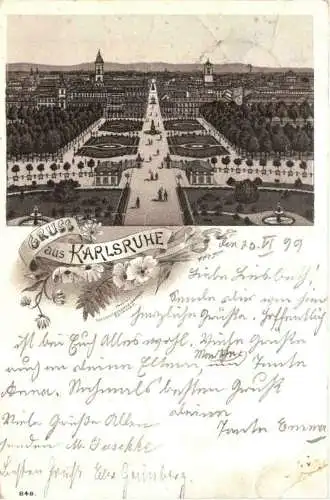 GRUSS
aus KARLSRUHE
den 20. VI 99
Liebe Lisbeth!
Sende dir von hier
herzliche Grüße. Hoffentlich
ist bei Euch Alles wohl. Viele Grüße
auch an deine Eltern und Tante
Anna. Nochmals besten Gruß
deine
Viele Grüße Allen Tante Emma
senden M. Jaschke
Besten Gruß
848.